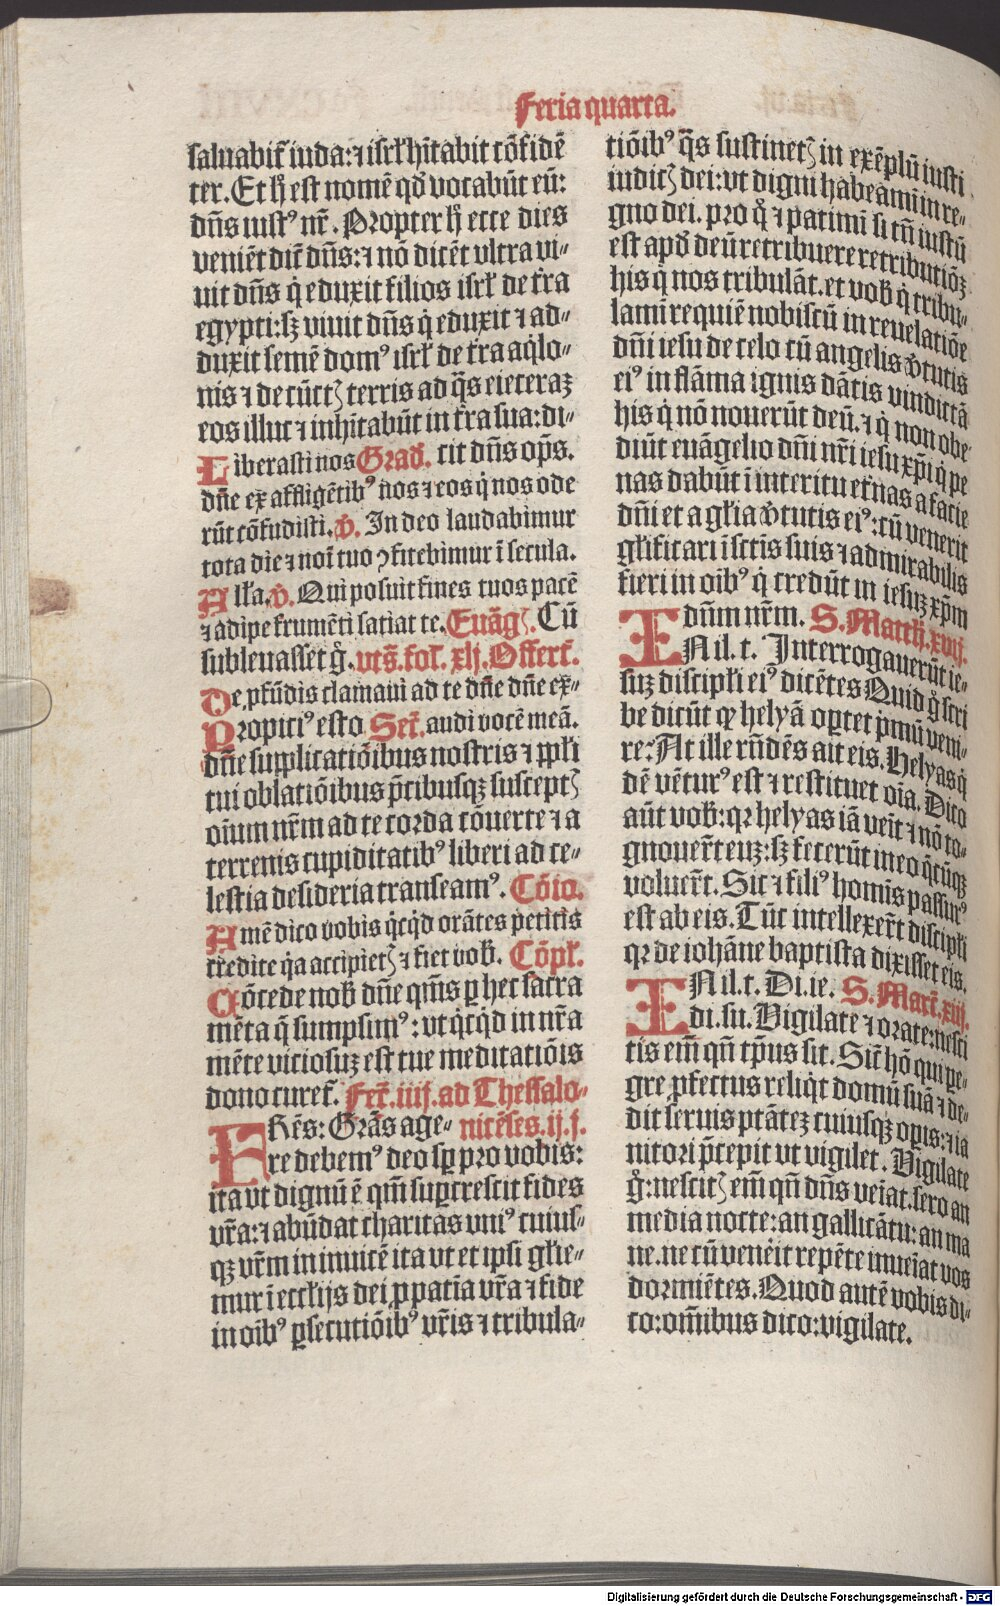 Feria quarta.
saluabit᷑ iuda: ⁊ isrł hītabit cōfidē
ter. Et h̄ est nomē qd̄ vocabūt eū:
dn̄s iustꝰ nr̄. Propter h̄ ecce dies
veniēt dic̄ dn̄s: ⁊ nō dicēt vltra vi⸗
uit dn̄s q̇ eduxit filios isrł de t̄ra
egypti: sꝫ viuit dn̄s q̇ eduxit ⁊ ad⸗
duxit semē domꝰ isrł de t̄ra aq̇lo⸗
nis ⁊ de cūctꝭ terris ad q̄s eieceraꝫ
eos illuc ⁊ inhītabūt in t̄ra sua: di⸗
Liberasti nos Grad̄. cit dn̄s op̄s.
dn̄e ex affligētibꝰ nos ⁊ eos q̇ nos ode
rūt cōfudisti. ℣. In deo laudabimur
tota die ⁊ noī tuo ꝯfitebimur ī secula.
Alła. ℣. Qui posuit fines tuos pacē
⁊ adipe frumēti satiat te. Euāgꝭ. Cū
subleuasset g̊. vts̄. fol̄. xlj. Offert̄.
De ꝓfūdis clamaui ad te dn̄e dn̄e ex⸗
Propiciꝰ esto Sec̄. audi vocē meā.
dn̄e supplicatiōibus nostris ⁊ ppłi
tui oblatiōibus p̄cibusqꝫ susceptꝭ
oīum nr̄m ad te corda cōuerte ⁊ a
terrenis cupiditatibꝰ liberi ad ce⸗
lestia desideria transeamꝰ. Cōio.
Amē dico vobis q̇cq̇d orātes petitis
credite q̇a accipietꝭ ⁊ fiet vob̄. Cōpł.
Cōcede nob̄ dn̄e qm̄s ꝑ hec sacra
mēta q̄ sumpsimꝰ: vt q̇cq̇d in nr̄a
mēte viciosuꝫ est tue meditatiōis
dono curet᷑. Fer̄. iiij. ad Thessalo⸗
FRēs: Grās age⸗ nicēses. ij. j.
re debemꝰ deo sꝑ pro vobis:
ita vt dignū ē qm̄ suꝑcrescit fides
vr̄a: ⁊ abūdat charitas vniꝰ cuius⸗
qꝫ vr̄m in inuicē ita vt et ipsi głie⸗
mur ī eccłijs dei ꝓ patīa vr̄a ⁊ fide
in oībꝰ ꝑsecutiōibꝰ vr̄is ⁊ tribula⸗
tiōibꝰ q̄s sustinetꝭ in exēplū iusti
iudicꝭ dei: vt digni habeamī in re⸗
gno dei. pro q̊ ⁊ patimī si tn̄ iustū
est apd̄ deū retribuere retributiōꝫ
his q̇ nos tribulāt. et vob̄ q̇ tribu⸗
lamī requiē nobiscū in reuelatiōe
dn̄i iesu de celo cū angelis ꝟtutis
eiꝰ in flāma ignis dātis vindictā
his q̇ nō nouerūt deū. ⁊ q̇ non obe
diūt euāgelio dn̄i nr̄i iesu xp̄i q̇ pe
nas dabūt ī interitu et̄nas a facie
dn̄i et a głia ꝟtutis eiꝰ: cū venerit
głificari ī sctīs suis ⁊ admirabilis
fieri in oībꝰ q̇ credūt in iesuꝫ xp̄m
dn̄m nr̄m. S. Math. xvij.
IN il. t. Interrogauerūt ie⸗
suꝫ discipłi eiꝰ dicētes Quid g̊ scri
be dicūt ꝙ helyā oꝑtet ṗmū veni⸗
re: At ille rn̄dēs ait eis. Helyas q̇
dē vēturꝰ est ⁊ restituet oīa. Dico
aūt vob̄: qꝛ helyas iā veīt ⁊ nō co⸗
gnouer̄t euꝫ: sꝫ fecerūt in eo q̄cūqꝫ
voluer̄t. Sic ⁊ filiꝰ homīs passurꝰ
est ab eis. Tūc intellexer̄t discipłi
qꝛ de iohāne baptista dixisset eis.
IN il. t. Di. ie. S. Marc̄. xiij.
di. su. Vigilate ⁊ orate: nesci
tis em̄ qn̄ tp̄us sit. Sic̄ hō qui pe⸗
gre ꝓfectus reliq̇t domū suā ⁊ de⸗
dit seruis ptāteꝫ cuiusqꝫ opis: ⁊ ia
nitori p̄cepit vt vigilet. Vigilate
g̊: nescitꝭ em̄ qn̄ dn̄s veīat. sero an
media nocte: an gallicātu: an ma
ne. ne cū venēit repēte inueīat vos
dormiētes. Quod autē vobis di⸗
co: om̄ibus dico: vigilate.
Digitalisierung gefördert durch die Deutsche Forschungsgemeinschaft - DFG